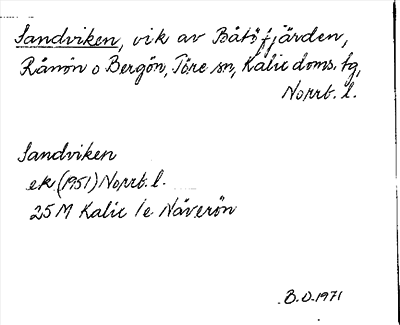 Sandviken, vik av Båtöfjärden,
Rånön o Bergön, Töre sn, Kalix doms. tg,
Norrb. l.
Sandviken
ek (1951) Norrb. l.
25 M Kalix /e Näverön
B.O. 1971